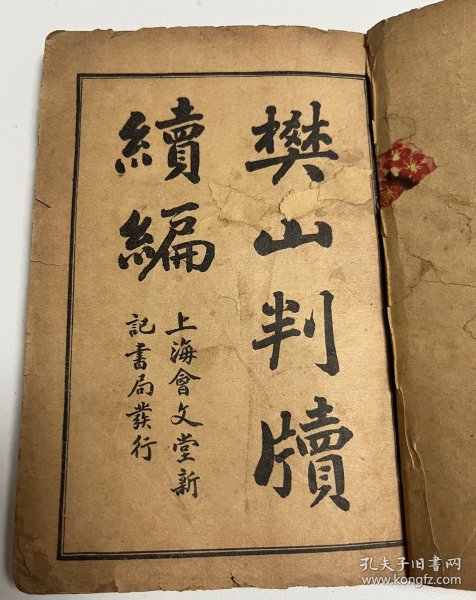 樊山判牘
續編
上海會文堂新
記書局發行
孔夫子旧书网
www.kongfz.com